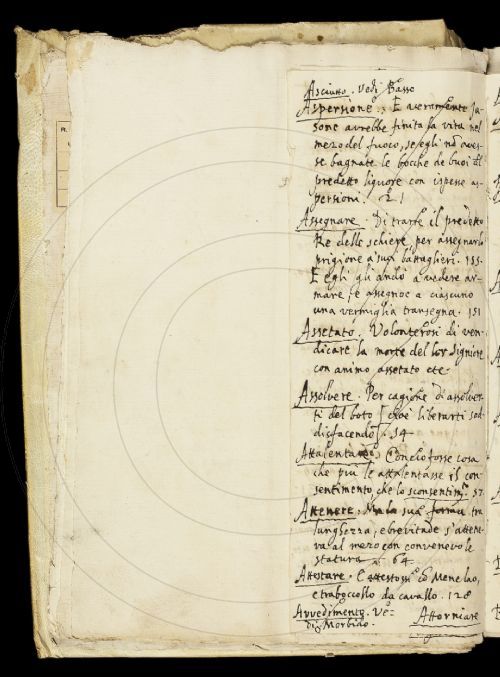 Asciutto. Vedi Basso
Aspersione: E averamente Ja-
sone avrebbe finita la vita nel
mezo del fuoco, se egli nō aves-
se bagnate le bocche de buoi del
predetto liquore con ispesse as-
persioni. 21
Assegnare. Di trarre il predetto
Re delle schiere, per assegnarlo
prigione a suoi battaglieri. 155.
E egli gli andò a vedere ar-
mare, e assegnoe a ciascuno
una vermiglia transegna. 151
Assetato. Volonterosi di ven-
dicare la morte del lor Signore
con animo assetato etc.
Assolvere. Per cagione di assolver-
ti del boto [cioè liberarti sod-
disfacendo] 54
Attalentare. Conciofosse cosa
che più le attalentasse il con-
sentimento, che lo sconsentim.to 57
Attenere. Ma la sua forma tra
lunghezza, e brevitade s'attene-
va al mezo con convenovole
statura. 64
Attestare. E attestossi cō Menelao,
e traboccollo da cavallo. 128
Avvedimento. Ve-
di Morbido.
Attorniare